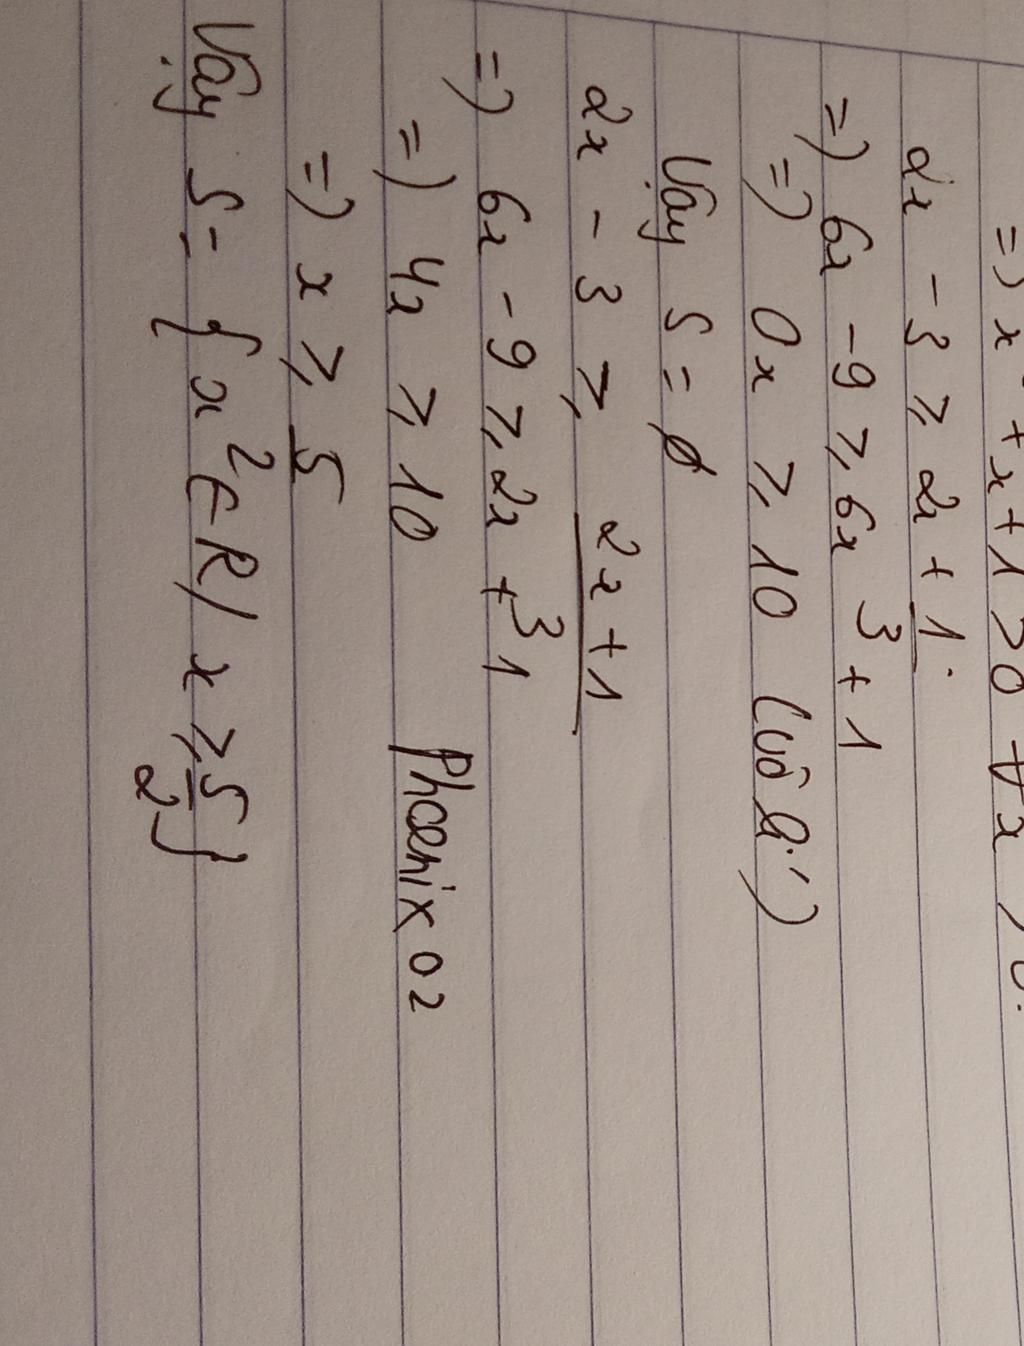 => x² + x + 1 > 0 ∀x
2x - 3 ≥ 2x + 1/3
=> 6x - 9 ≥ 6x + 1
=> 0x ≥ 10 (vô lí)
Vậy S = ∅
2x - 3 ≥ (2x + 1)/3
=> 6x - 9 ≥ 2x + 1
=> 4x ≥ 10 Phoenix 02
=> x ≥ 5/2
Vậy S = {x ∈ R / x ≥ 5/2}